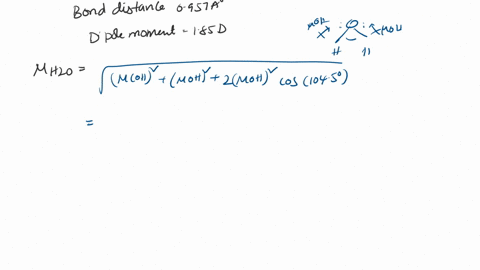 Bond distance 0.957A°
Diple moment - 1.85D
μOH
:O:
μOH
H H
μH2O = √(μ(OH)² + (μOH)² + 2(μOH)² cos(104.5°)
=